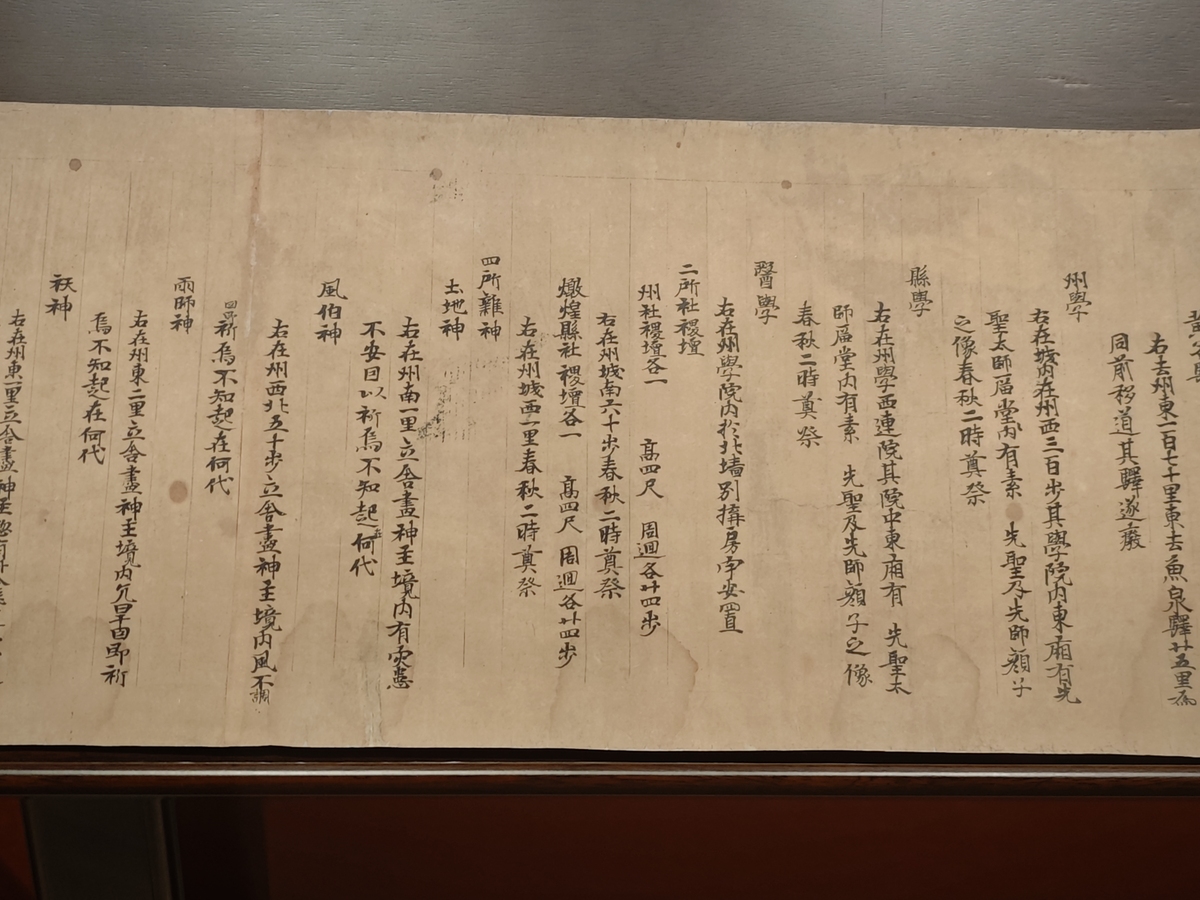 右去州東一百七十里東去魚泉驛廿五里為
同前移道其驛遂廢
州學
右在城內在州西三百步其學院內東廂有先
聖太師庙堂內有素　先聖及先師顏子
之像春秋二時奠祭
縣學
右在州學西連院其院中東廂有　先聖太
師庙堂內有素　先聖及先師顏子之像
春秋二時奠祭
醫學
右在州學院內於北墻別搆房宇安置
二所社稷壇
州社稷壇各一　高四尺　周迴各廿四步
右在州城南六十步春秋二時奠祭
燉煌縣社稷壇各一　高四尺　周迴各廿四步
右在州城西一里春秋二時奠祭
四所雜神
土地神
右在州南一里立舍畫神主境內有灾患
不安因以祈焉不知起在何代
風伯神
右在州西北五十步立舍畫神主境內風不調
因即祈焉不知起在何代
雨師神
右在州東二里立舍畫神主境內亢旱因即祈
焉不知起在何代
祆神
右在州東一里立舍畫神主惣有廿龕